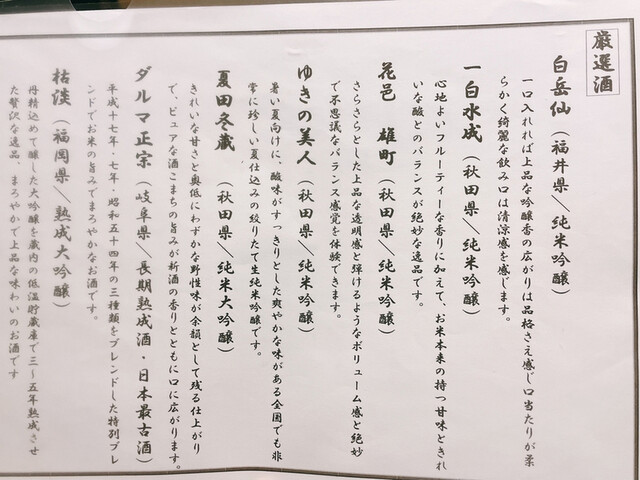 厳選酒
白岳仙（福井県／純米吟醸）
一口入れれば上品な吟醸香の広がりは品格さえ感じ口当たりが柔
らかく綺麗な飲み口は清涼感を感じます。
一白水成（秋田県／純米吟醸）
心地よいフルーティーな香りに加えて、お米本来の持つ甘味ときれ
いな酸とのバランスが絶妙な逸品です。
花邑　雄町（秋田県／純米吟醸）
さらさらとした上品な透明感と弾けるようなボリューム感と絶妙
で不思議なバランス感覚を体験できます。
ゆきの美人（秋田県／純米吟醸）
暑い夏向けに、酸味がすっきりとした爽やかな味がある全国でも非
常に珍しい夏仕込みの絞りたて生純米吟醸です。
夏田冬蔵（秋田県／純米大吟醸）
きれいな甘さと奥低にわずかな野性味が余韻として残る仕上がり
で、ピュアな酒こまちの旨みが新酒の香りとともに口に広がります。
ダルマ正宗（岐阜県／長期熟成酒・日本最古酒）
平成十七年・七年・昭和五十四年の三種類をブレンドした特別ブレ
ンドでお米の旨みでまろやかなお酒です。
枯淡（福岡県／熟成大吟醸）
丹精込めて醸した大吟醸を蔵内の低温貯蔵庫で三～五年熟成させ
た贅沢な逸品、まろやかで上品な味わいのお酒です